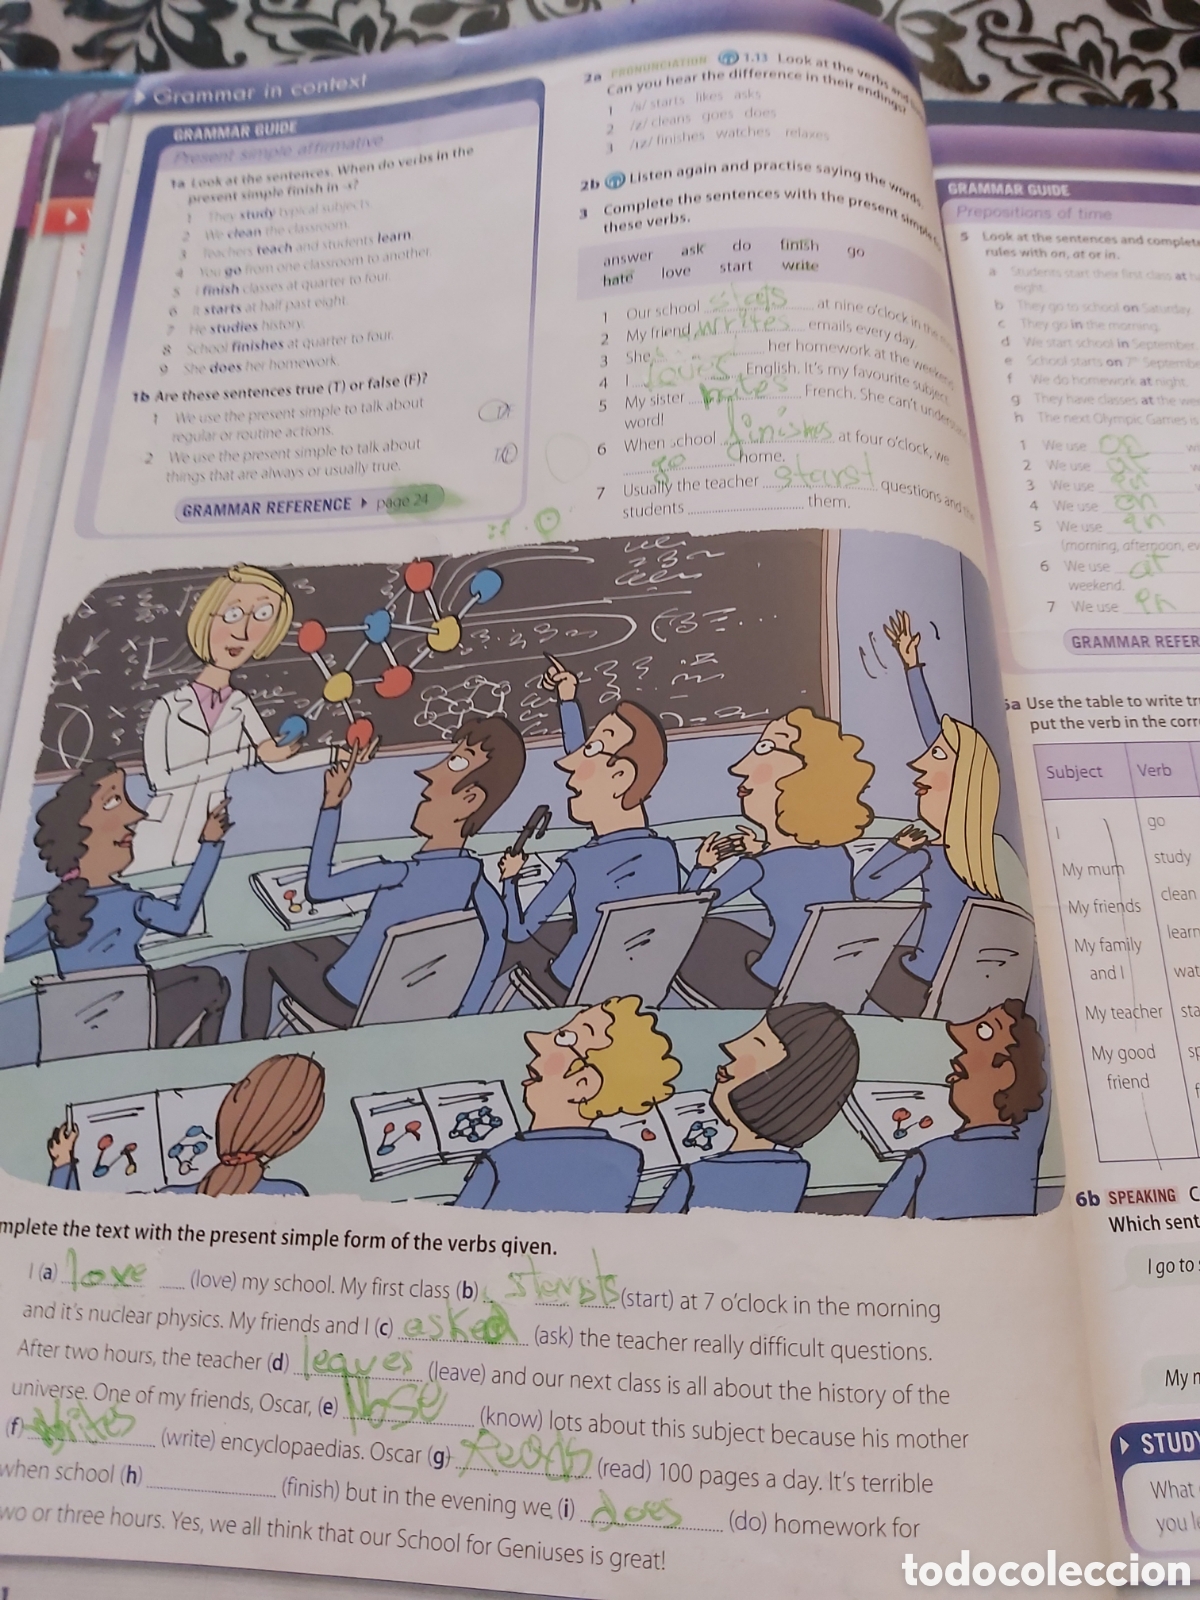 Grammar in context
GRAMMAR GUIDE
Present simple affirmative
1a Look at the sentences. When do verbs in the
present simple finish in -s?
1 They study typical subjects.
2 We clean the classroom.
3 Teachers teach and students learn.
4 You go from one classroom to another.
5 I finish classes at quarter to four.
6 It starts at half past eight.
7 He studies history.
8 School finishes at quarter to four.
9 She does her homework.
1b Are these sentences true (T) or false (F)?
1 We use the present simple to talk about
regular or routine actions.
2 We use the present simple to talk about
things that are always or usually true.
GRAMMAR REFERENCE page 24
2a PRONUNCIATION 1.13 Look at the verbs and
Can you hear the difference in their endings?
1 /s/ starts likes asks
2 /z/ cleans goes does
3 /ɪz/ finishes watches relaxes
2b Listen again and practise saying the words.
3 Complete the sentences with the present simple
these verbs.
answer ask do finish go
hate love start write
1 Our school stats at nine o'clock in the
2 My friend writes emails every day.
3 She her homework at the weekend
4 I loves English. It's my favourite subject.
5 My sister French. She can't
word!
6 When school finishes at four o'clock, we
go home.
7 Usually the teacher starst questions and
students them.
mplete the text with the present simple form of the verbs given.
I (a) love (love) my school. My first class (b) (start) at 7 o'clock in the morning
and it's nuclear physics. My friends and I (c) asked (ask) the teacher really difficult questions.
After two hours, the teacher (d) leaves (leave) and our next class is all about the history of the
universe. One of my friends, Oscar, (e) (know) lots about this subject because his mother
(f) (write) encyclopaedias. Oscar (g) (read) 100 pages a day. It's terrible
when school (h) (finish) but in the evening we (i) does (do) homework for
wo or three hours. Yes, we all think that our School for Geniuses is great!
GRAMMAR GUIDE
Prepositions of time
5 Look at the sentences and complete
rules with on, at or in.
a Students start their first class at
eight.
b They go to school on Saturday.
c They go in the morning.
d We start school in September.
e School starts on 7th September
f We do homework at night.
g They have classes at the
h The next Olympic Games is
1 We use on
2 We use at
3 We use
4 We use en
5 We use en
(morning, afternoon,
6 We use at
weekend.
7 We use en
GRAMMAR REFER
6a Use the table to write
put the verb in the
Subject Verb
I go
My mum study
My friends clean
My family learn
and I
My teacher
My good
friend
6b SPEAKING
Which sent
I go to
My
STUDY
What
you
todocoleccion